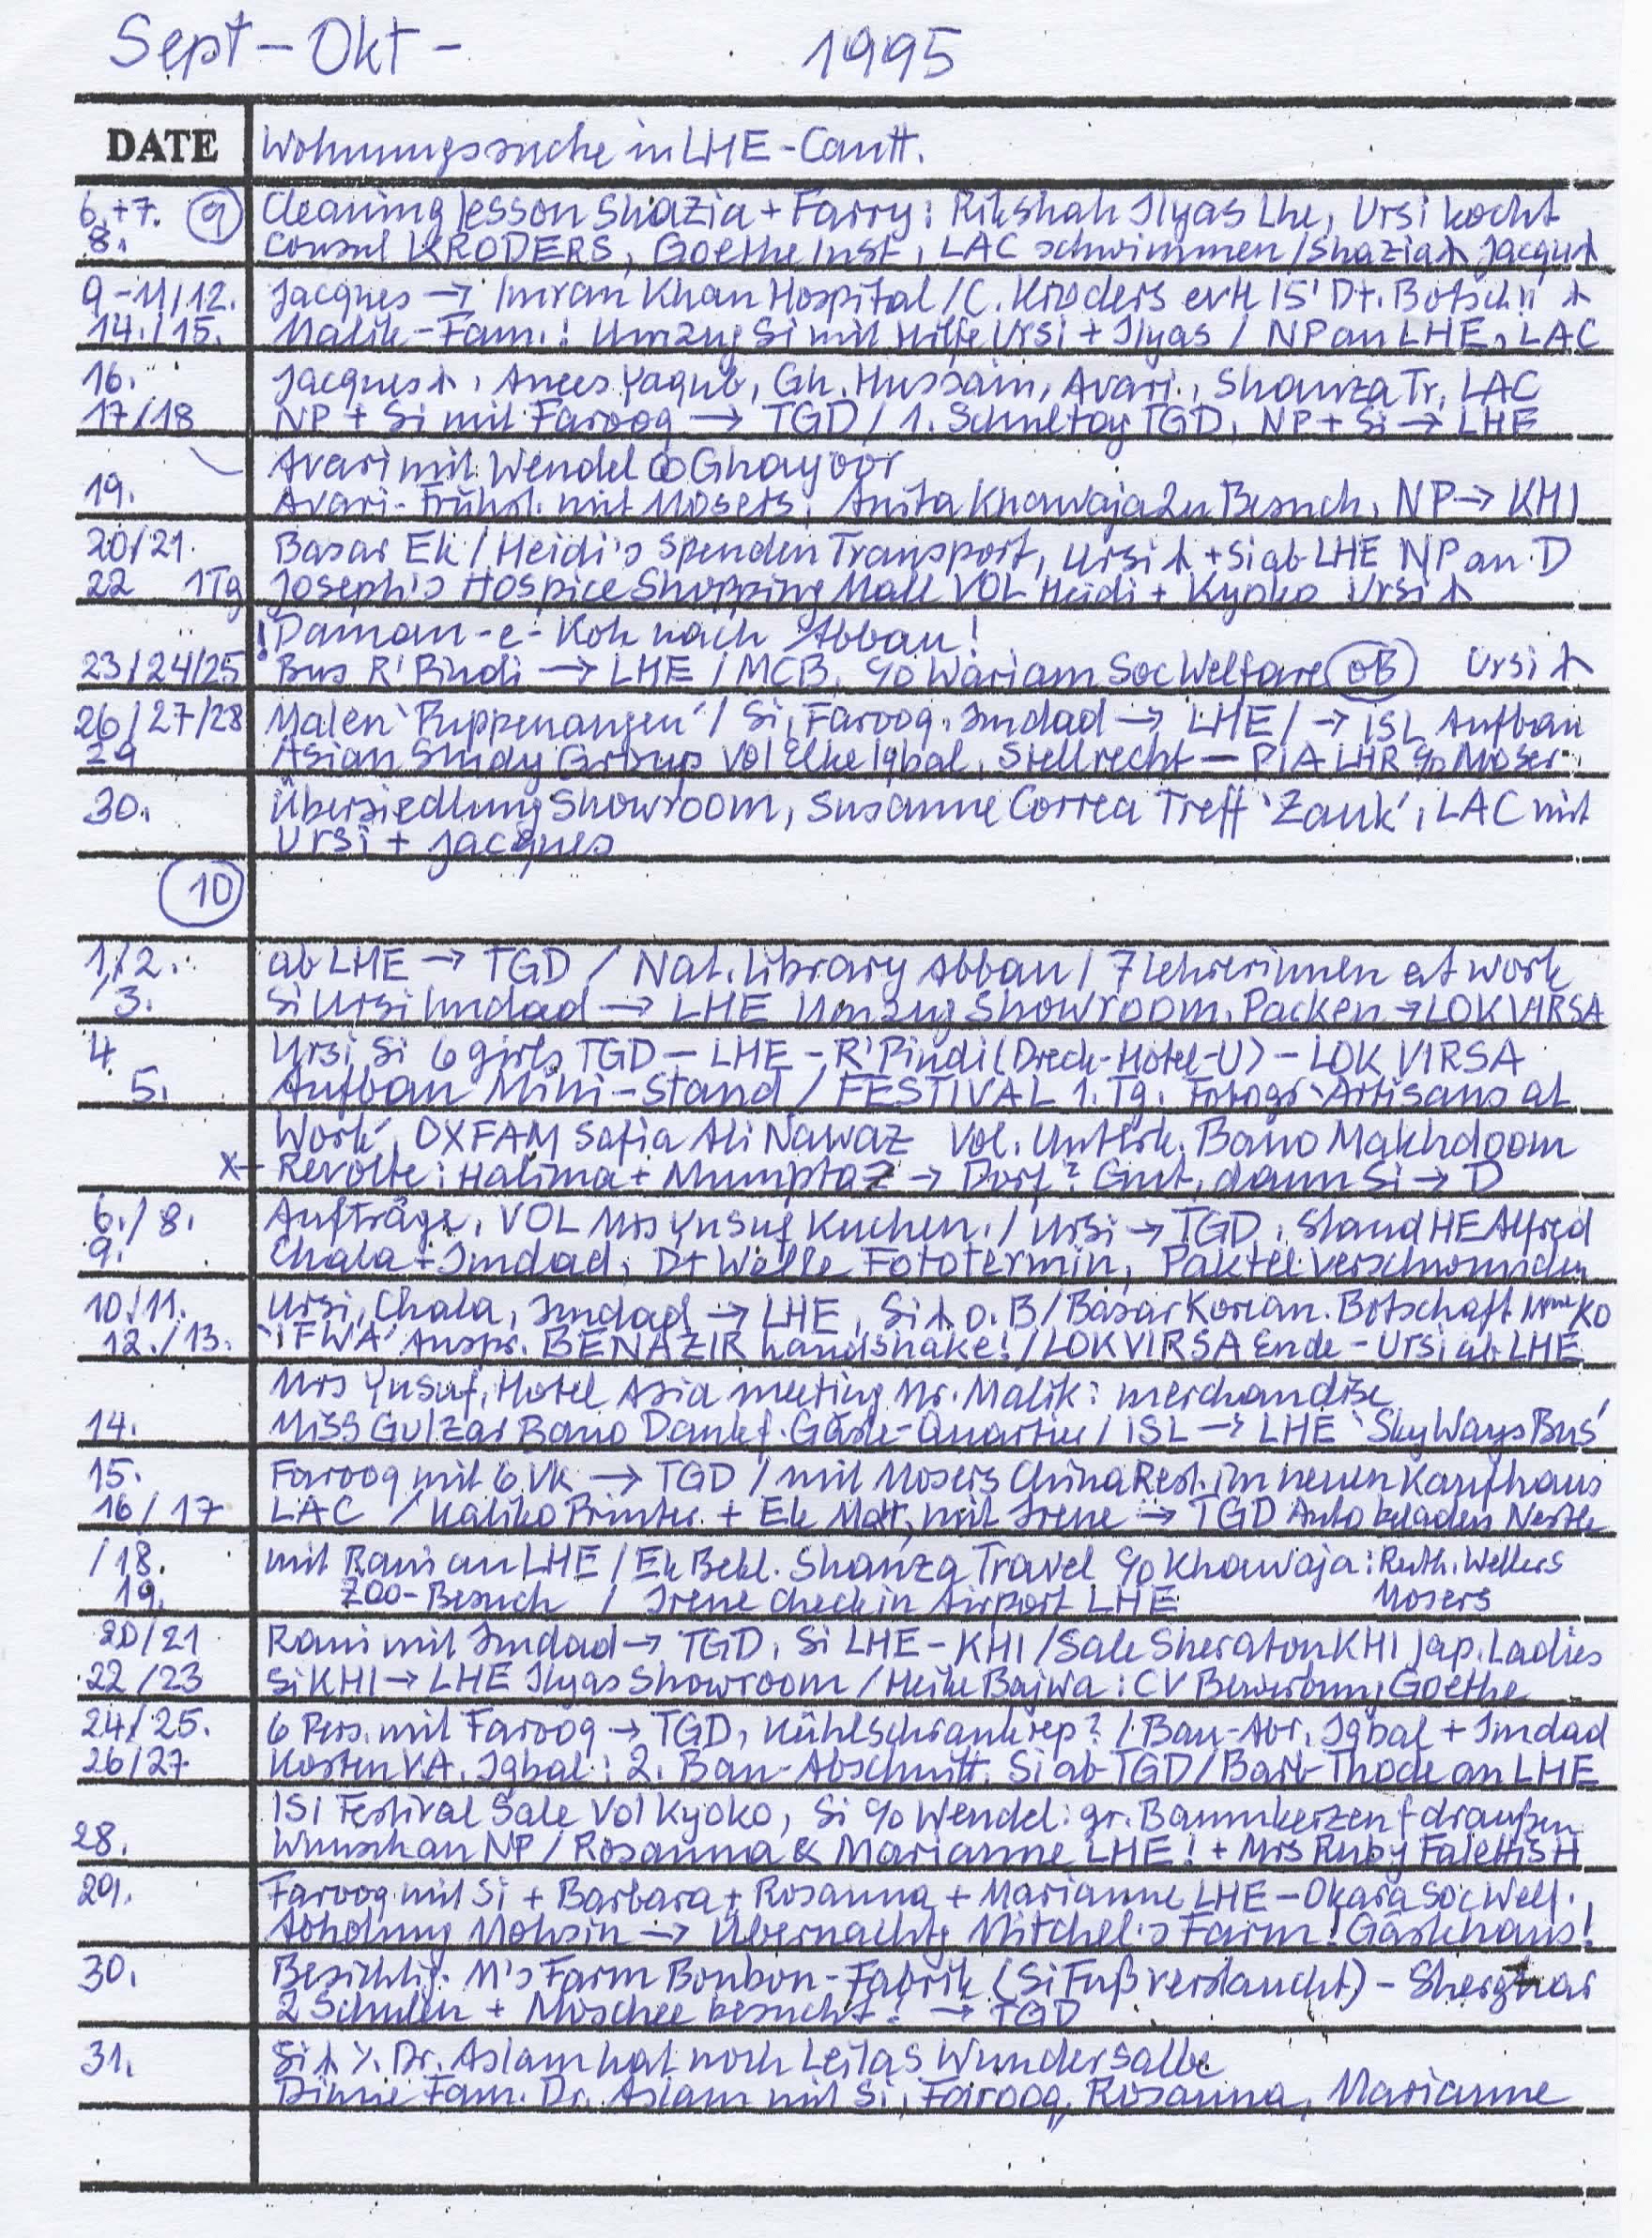 Sept – Okt – 1995
DATE Wohnungssuche in LHE-Cantt.
6.+7. 9 Cleaning lesson Shazia + Farry: Rikshah Ilyas Lhe, Ursi kocht
8. Consul KRODERS, Goethe Inst, LAC schwimmen / Shazia
9-11/12. Jacques → Imran Khan Hospital / C. Kroders 15' Dt. Botsch!!
14./15. Malik-Fam.! Umzug Si mit Hilfe Ursi + Ilyas / NP an LHE, LAC
16. Jacques, Anees Yaqub, Gh. Hussain, Avari, Shanza Tr, LAC
17/18 NP + Si mit Farooq → TGD / 1. Schultag TGD, NP + Si → LHE
Avari mit Wendel Ghayoor
19. Avari-Frühst. mit Mosers, Anita Khawaja zu Besuch, NP → KHI
20/21. Basar Ek / Heidi's Spenden Transport, Ursi + Si ab LHE NP an D
22 1Tg Joseph's Hospice Shopping Mall VOL Heidi + Kyoko Ursi
! Daman-e-Koh nach Abbau!
23/24/25 Bus R'Pindi → LHE / MCB, c/o Wariam Soc Welfare oB Ursi
26/27/28 Malen 'Puppenaugen' / Si, Farooq, Imdad → LHE / → ISL Aufbau
29 Asian Study Group Vol Elke Iqbal, Stellrecht – PIA LHR c/o Moser
30. Übersiedlung Showroom, Susanne Correa Treff 'Zauk', LAC mit
Ursi + Jacques
10
1./2. ab LHE → TGD / Nat. Library Abbau / 7 Lehrerinnen at work
/3. Si Ursi Imdad → LHE Umzug Showroom, Packen → LOK VIRSA
4 Ursi, Si 6 girls TGD – LHE – R'Pindi (Dreck-Hotel-U) – LOK VIRSA
5. Aufbau Mini-Stand / FESTIVAL 1. Tg. Fotogr 'Artisans at
Work', OXFAM Safia Ali Nawaz Vol. Unterk. Bano Makhdoom
x- Revolte: Halima + Mumptaz → Dorf? Gut, dann Si → D
6./8. Aufträge, VOL Mrs Yusuf Kuchen. / Ursi → TGD, Stand HE Alfred
9. Chala + Imdad, Dt Welle Fototermin, Paktel verschwunden
10./11. Ursi, Chala, Imdad → LHE, Si o. B / Basar Korean. Botschaft Mme KO
12./13. 'IFWA' Anspr. BENAZIR handshake! / LOK VIRSA Ende – Ursi ab LHE
Mrs Yusuf, Hotel Asia meeting Mr. Malik: merchandise
14. Miss Gulzar Bano Dank f. Gäste-Quartier / ISL → LHE 'SkyWays Bus'
15. Farooq mit 6 Vk → TGD / mit Mosers China Rest. im neuen Kaufhaus
16/17 LAC / Kaliko Printer. + Ek Matt, mit Irene → TGD Auto beladen Nestle
/18. mit Rani an LHE / Ek Bekl. Shanza Travel c/o Khawaja: Ruth. Wellers
19. Zoo-Besuch / Irene check in Airport LHE Mosers
20/21 Rani mit Imdad → TGD, Si LHE – KHI / Sale Sheraton KHI Jap. Ladies
22/23 Si KHI → LHE Ilyas Showroom / Heike Bajwa: CV Bewerbung Goethe
24/25. 6 Pers. mit Farooq → TGD, Kühlschrank rep? / Bau-Abr. Iqbal + Imdad
26/27 Kosten V.A. Iqbal: 2. Bau-Abschnitt. Si ab TGD / Barb-Thode an LHE
ISl Festival Sale Vol Kyoko, Si c/o Wendel: gr. Baumkerzen f draußen
28. Wunsch an NP / Rosanna & Marianne LHE! + Mrs Ruby Falettis H
29. Farooq mit Si + Barbara + Rosanna + Marianne LHE – Okara Soc Welf.
Abholung Mohsin → Übernachtg Mitchel's Farm! Gästehaus!
30. Besichtig. M's Farm Bonbon-Fabrik (Si Fuß verstaucht) –
2 Schulen + Moschee besucht! → TGD
31. Si Dr. Aslam hat noch Leilas Wundersalbe
Dinne Fam. Dr. Aslam mit Si, Farooq, Rosanna, Marianne